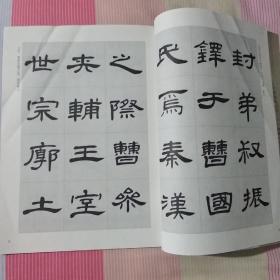 封弟叔振
鐸于曹國
氏焉秦漢
之際曹參
夾輔王室
世宗廓土